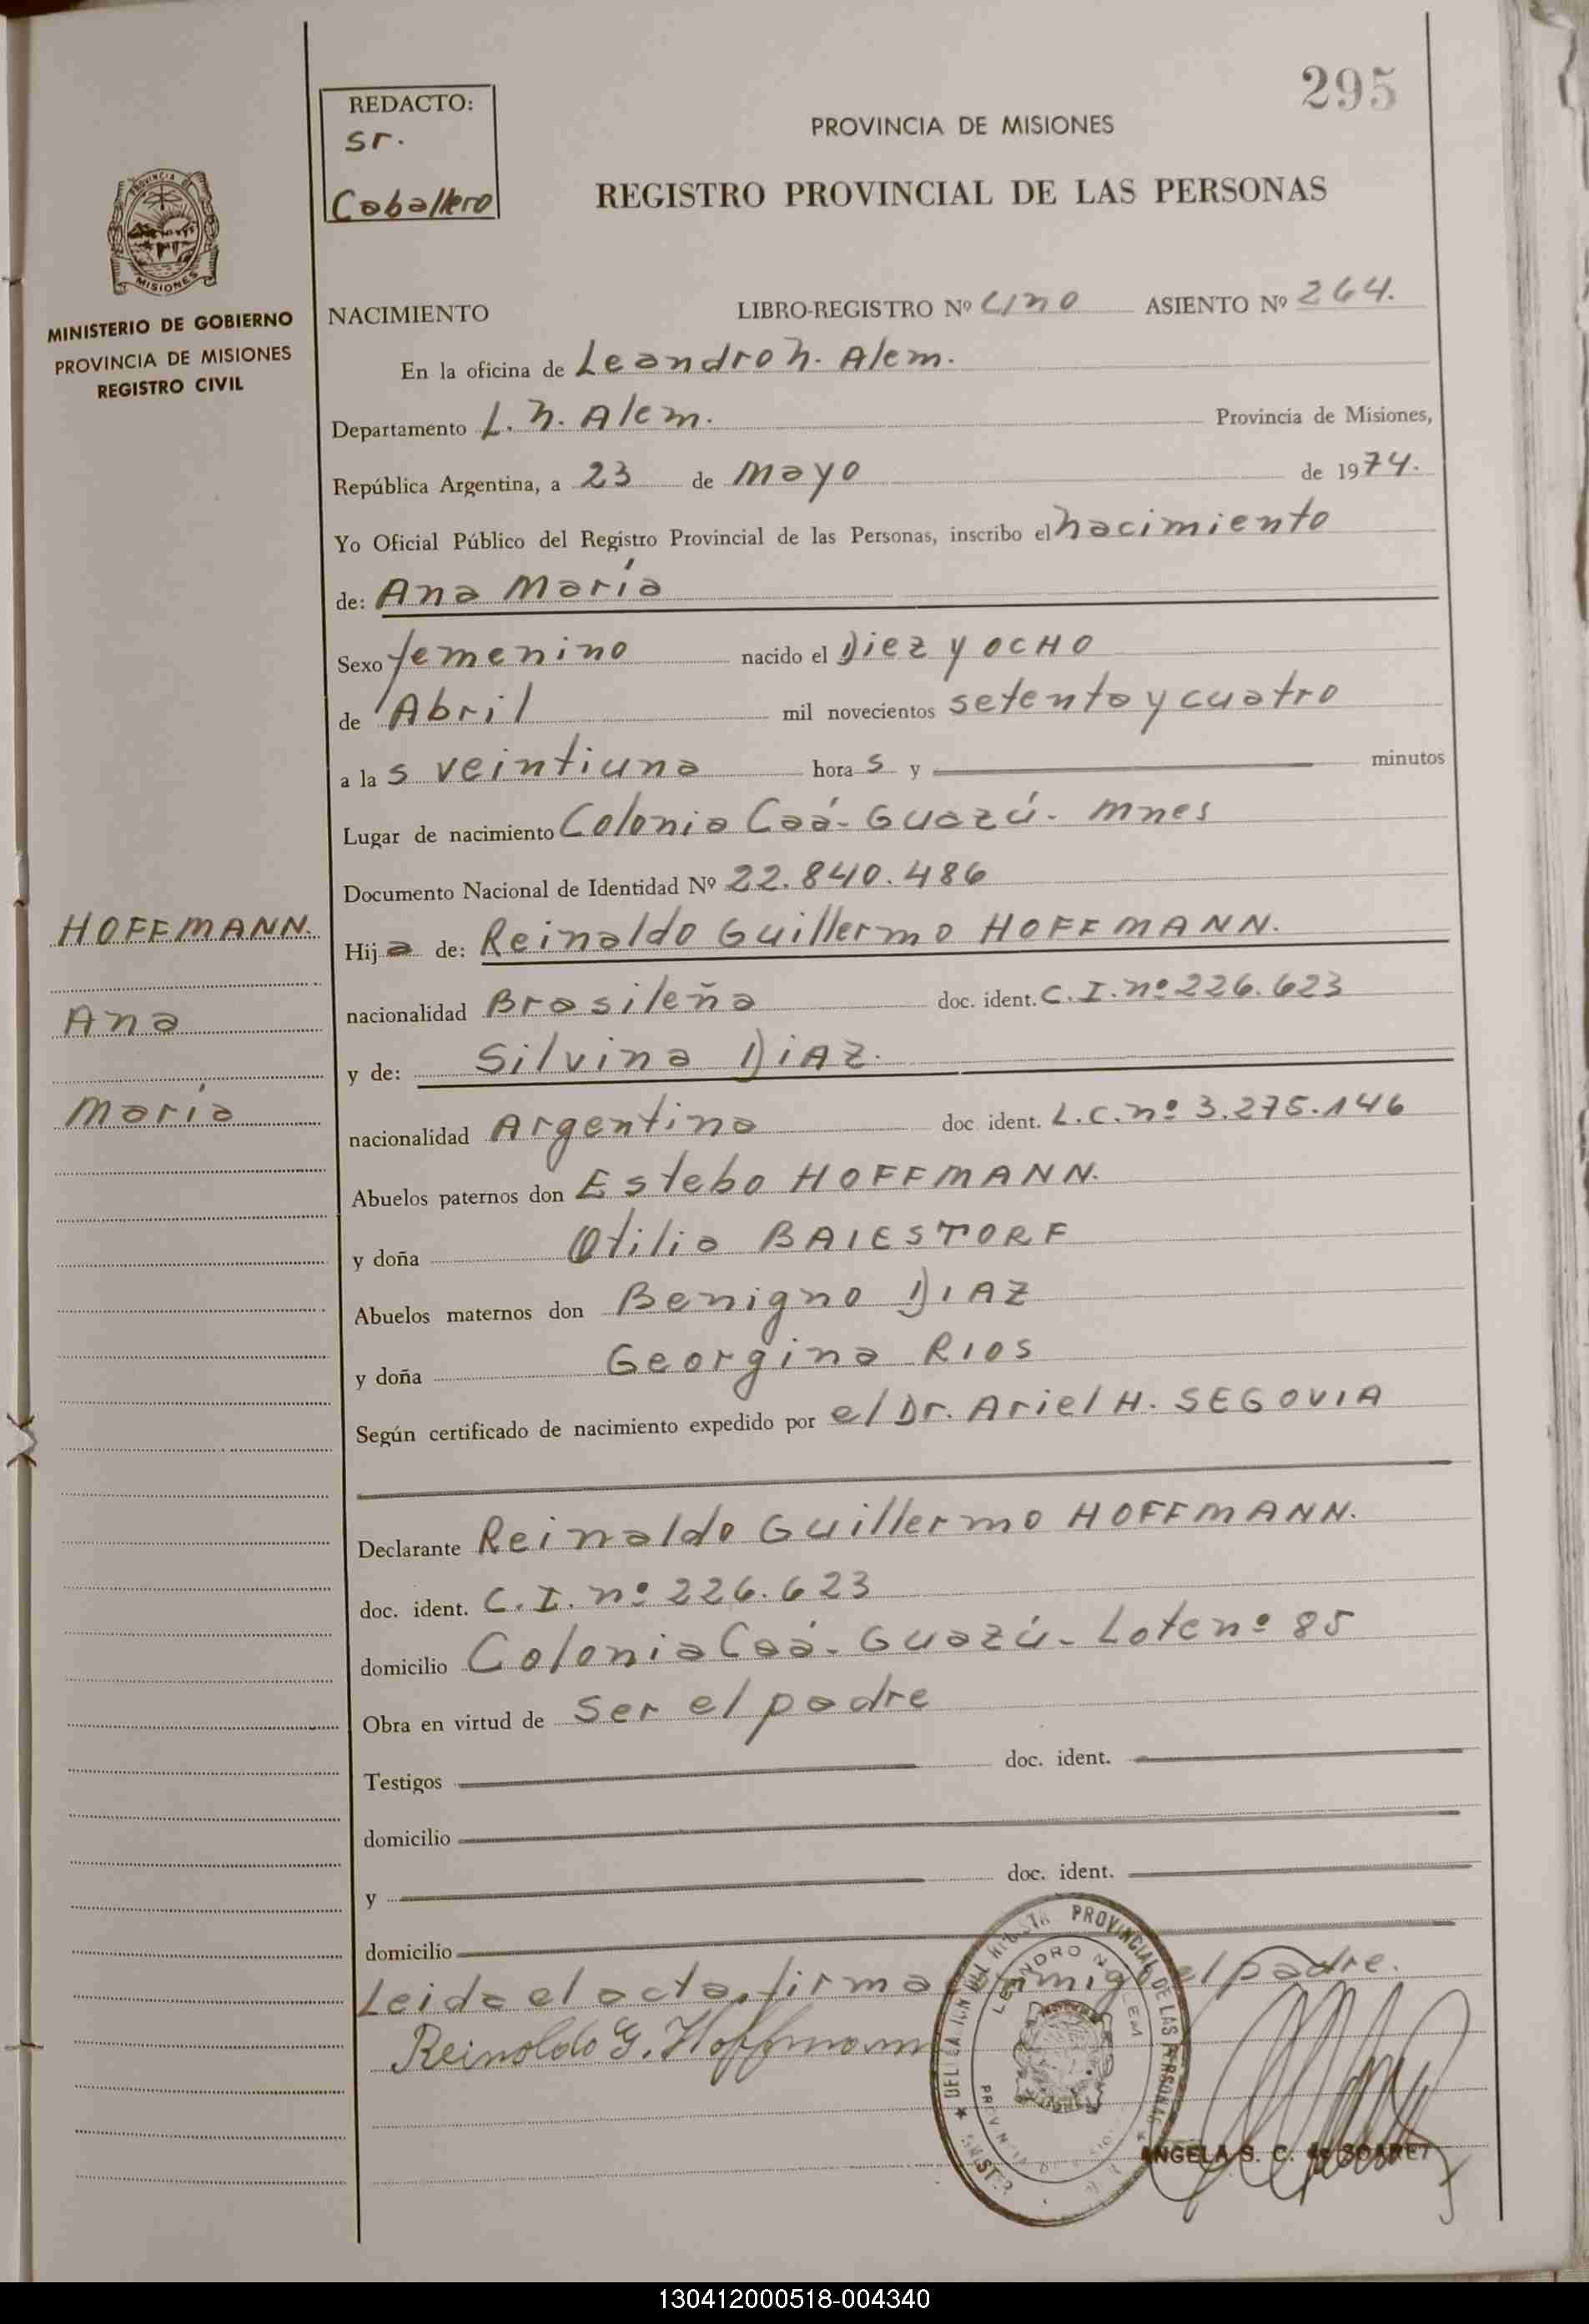 295
REDACTO:
sr.
Caballero
PROVINCIA DE MISIONES
REGISTRO PROVINCIAL DE LAS PERSONAS
MISIONES
MINISTERIO DE GOBIERNO
PROVINCIA DE MISIONES
REGISTRO CIVIL
NACIMIENTO LIBRO-REGISTRO Nº Uno ASIENTO Nº 264.
En la oficina de Leandro N. Alem.
Departamento L. N. Alem. Provincia de Misiones,
República Argentina, a 23 de Mayo de 1974.
Yo Oficial Público del Registro Provincial de las Personas, inscribo el nacimiento
de: Ana María
Sexo femenino nacido el Diez y OCHO
de Abril mil novecientos setenta y cuatro
a las veintiuna horas y minutos
Lugar de nacimiento Colonia Caá-Guazú- Mnes
Documento Nacional de Identidad Nº 22.840.486
HOFFMANN.
Hija de: Reinaldo Guillermo HOFFMANN.
nacionalidad Brasileña doc. ident. C. I. nº 226.623
Ana
y de: Silvina DIAZ.
María
nacionalidad Argentina doc ident. L.C. nº 3.275.146
Abuelos paternos don Estebo HOFFMANN.
y doña Otilia BAIESTORF
Abuelos maternos don Benigno DIAZ
y doña Georgina RIOS
Según certificado de nacimiento expedido por el Dr. Ariel H. SEGOVIA
Declarante Reinaldo Guillermo HOFFMANN.
doc. ident. C. I. nº 226.623
domicilio Colonia Caá-Guazú- Lote nº 85
Obra en virtud de ser el padre
Testigos doc. ident.
domicilio
y doc. ident.
domicilio
Leida el acta, firma conmigo el padre.
Reinoldo G. Hoffmann
PROVINCIAL DE LAS PERSONAS
LEANDRO N. ALEM
ANGELA S. C. de
130412000518-004340